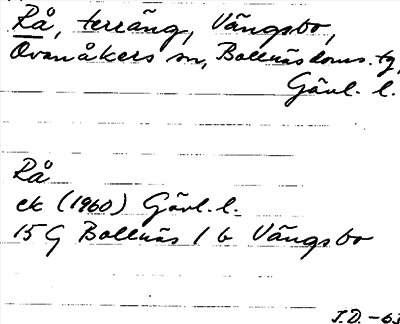 Rå, terräng, Vängsbo,
Ovanåkers sn, Bollnäs doms. tg,
Gävl. l.
Rå
ek (1960) Gävl. l.
15 G Bollnäs 1 b Vängsbo
J.D. -63